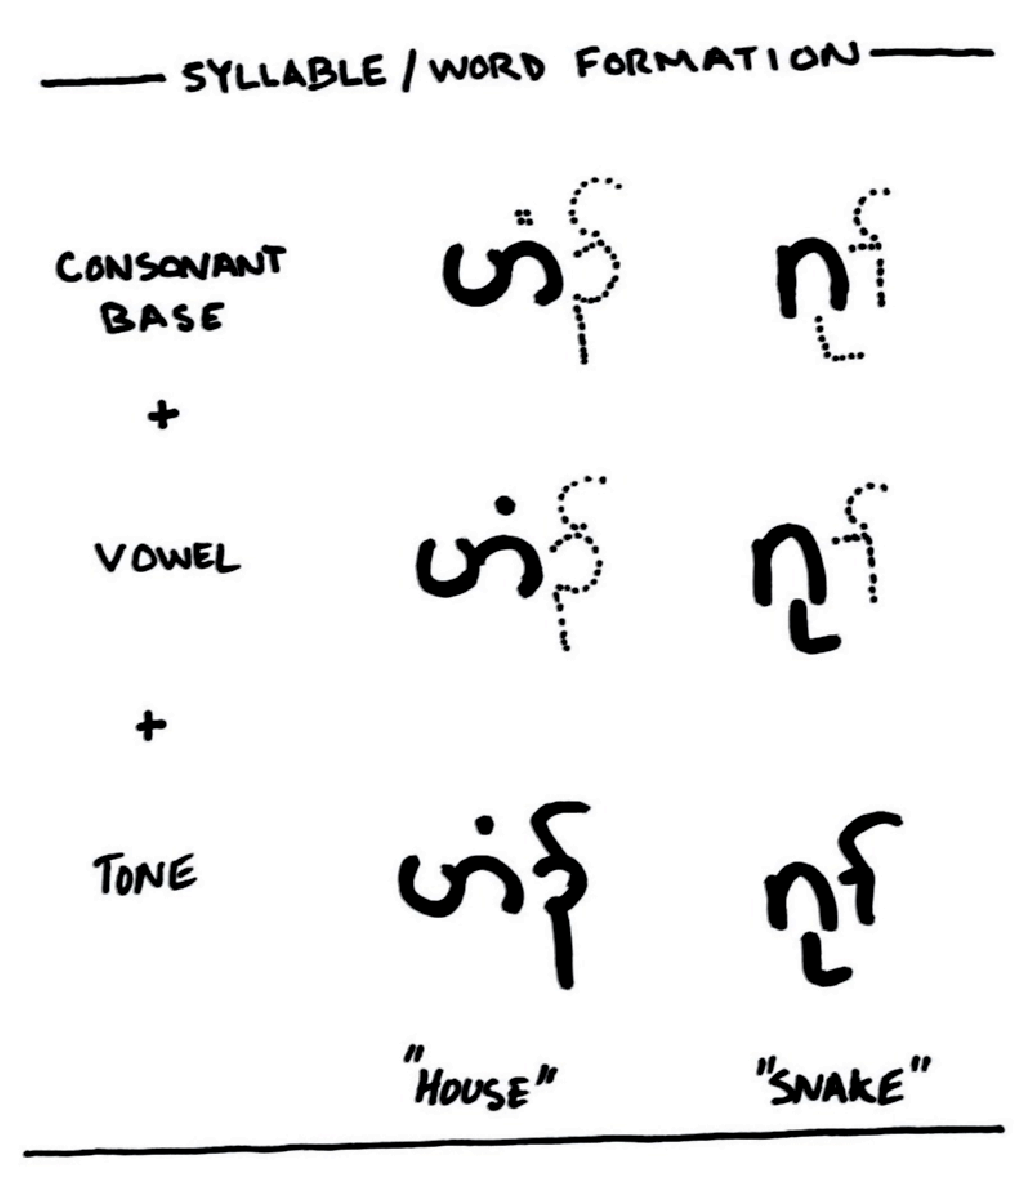 SYLLABLE / WORD FORMATION
CONSONANT BASE ဟ ဂ
+
VOWEL ဟံ ဂု
+
TONE ဟံၣ် ဂုၢ်
"HOUSE" "SNAKE"